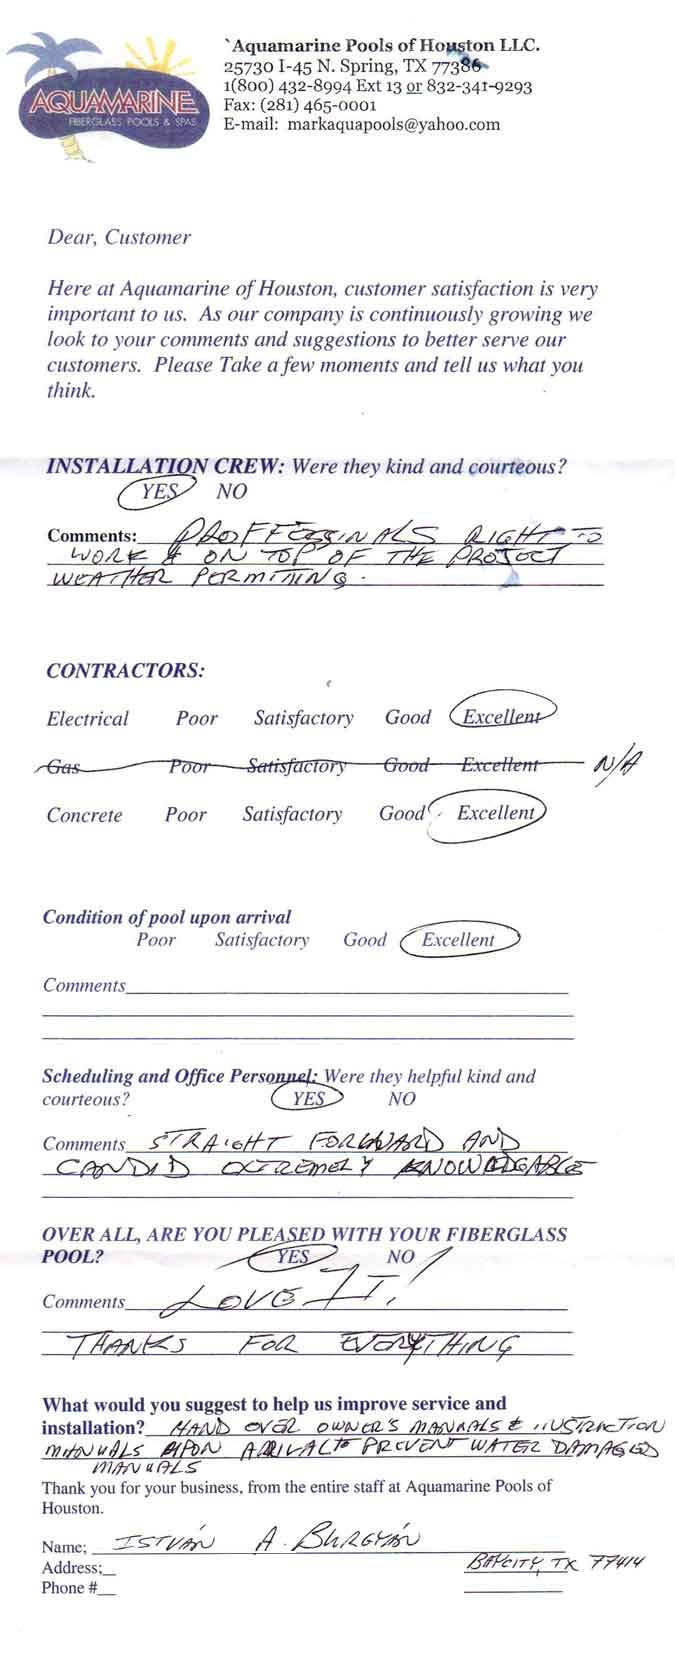 `Aquamarine Pools of Houston LLC.
25730 I-45 N. Spring, TX 77386
1(800) 432-8994 Ext 13 or 832-341-9293
Fax: (281) 465-0001
E-mail: markaquapools@yahoo.com
AQUAMARINE
FIBERGLASS POOLS & SPAS
Dear, Customer
Here at Aquamarine of Houston, customer satisfaction is very
important to us. As our company is continuously growing we
look to your comments and suggestions to better serve our
customers. Please Take a few moments and tell us what you
think.
INSTALLATION CREW: Were they kind and courteous?
YES NO
Comments: PROFFESSINALS RIGHT TO
WORK & ON TOP OF THE PROJECT
WEATHER PERMITTING.
CONTRACTORS:
Electrical Poor Satisfactory Good Excellent
Gas Poor Satisfactory Good Excellent N/A
Concrete Poor Satisfactory Good Excellent
Condition of pool upon arrival
Poor Satisfactory Good Excellent
Comments
Scheduling and Office Personnel: Were they helpful kind and
courteous? YES NO
Comments STRAIGHT FORWARD AND
CANDID EXTREMELY KNOWLEDGABLE
OVER ALL, ARE YOU PLEASED WITH YOUR FIBERGLASS
POOL? YES NO
Comments LOVE IT!
THANKS FOR EVERYTHING
What would you suggest to help us improve service and
installation? HAND OVER OWNER'S MANUALS & INSTRUCTION
MANUALS UPON ARRIVAL TO PREVENT WATER DAMAGED
MANUALS
Thank you for your business, from the entire staff at Aquamarine Pools of
Houston.
Name; ISTVÁN A. BURGYÁN
Address; BAYCITY, TX 77414
Phone #